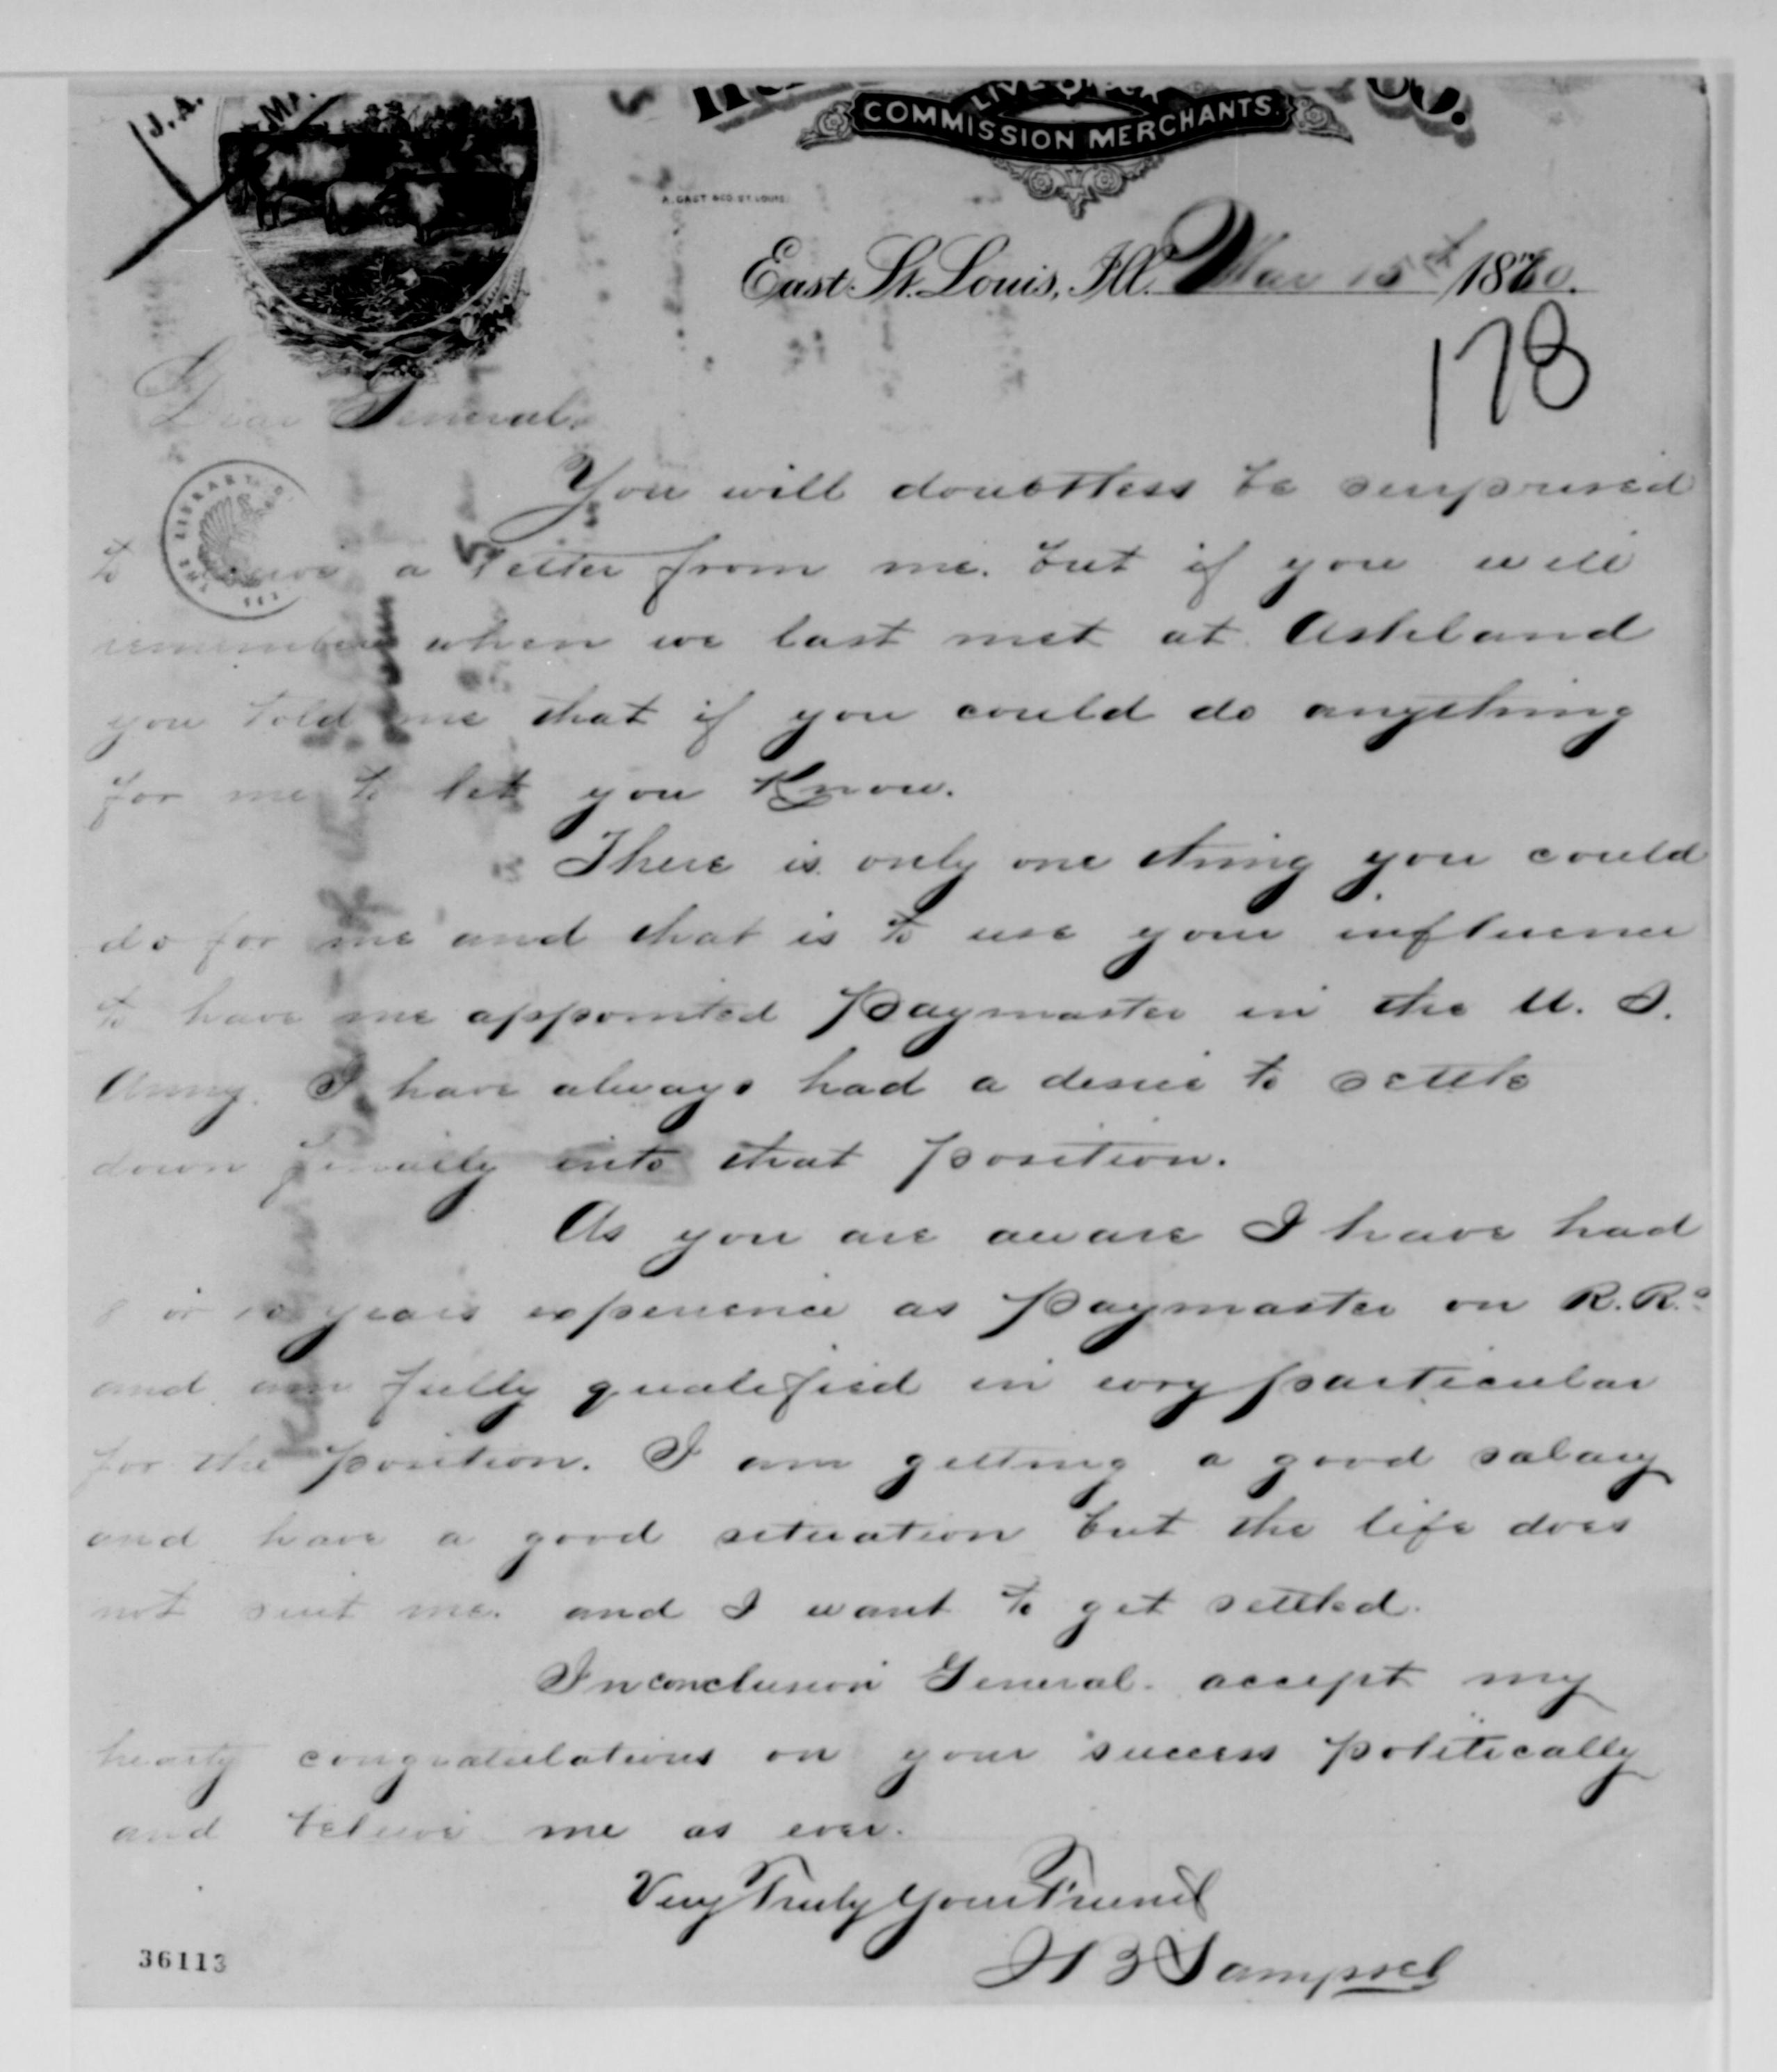 J. A.
Co.
LIVE STOCK
COMMISSION MERCHANTS.
A. GAST & CO. ST. LOUIS.
East St. Louis, Ill. Mar 15th 1880.
178
Dear General.
You will doubtless be surprised
to receive a letter from me. but if you will
remember when we last met at Ashland
you told me that if you could do anything
for me to let you know.
There is only one thing you could
do for me and that is to use your influence
to have me appointed Paymaster in the U. S.
Army. I have always had a desire to settle
down finally into that position.
As you are aware I have had
8 or 10 years experience as Paymaster on R. Rs
and am fully qualified in every particular
for the position. I am getting a good salary
and have a good situation but the life does
not suit me. and I want to get settled.
In conclusion General. accept my
hearty congratulations on your success politically
and believe me as ever.
Very Truly Your Friend
H B Sampsel
36113
THE LIBRARY OF